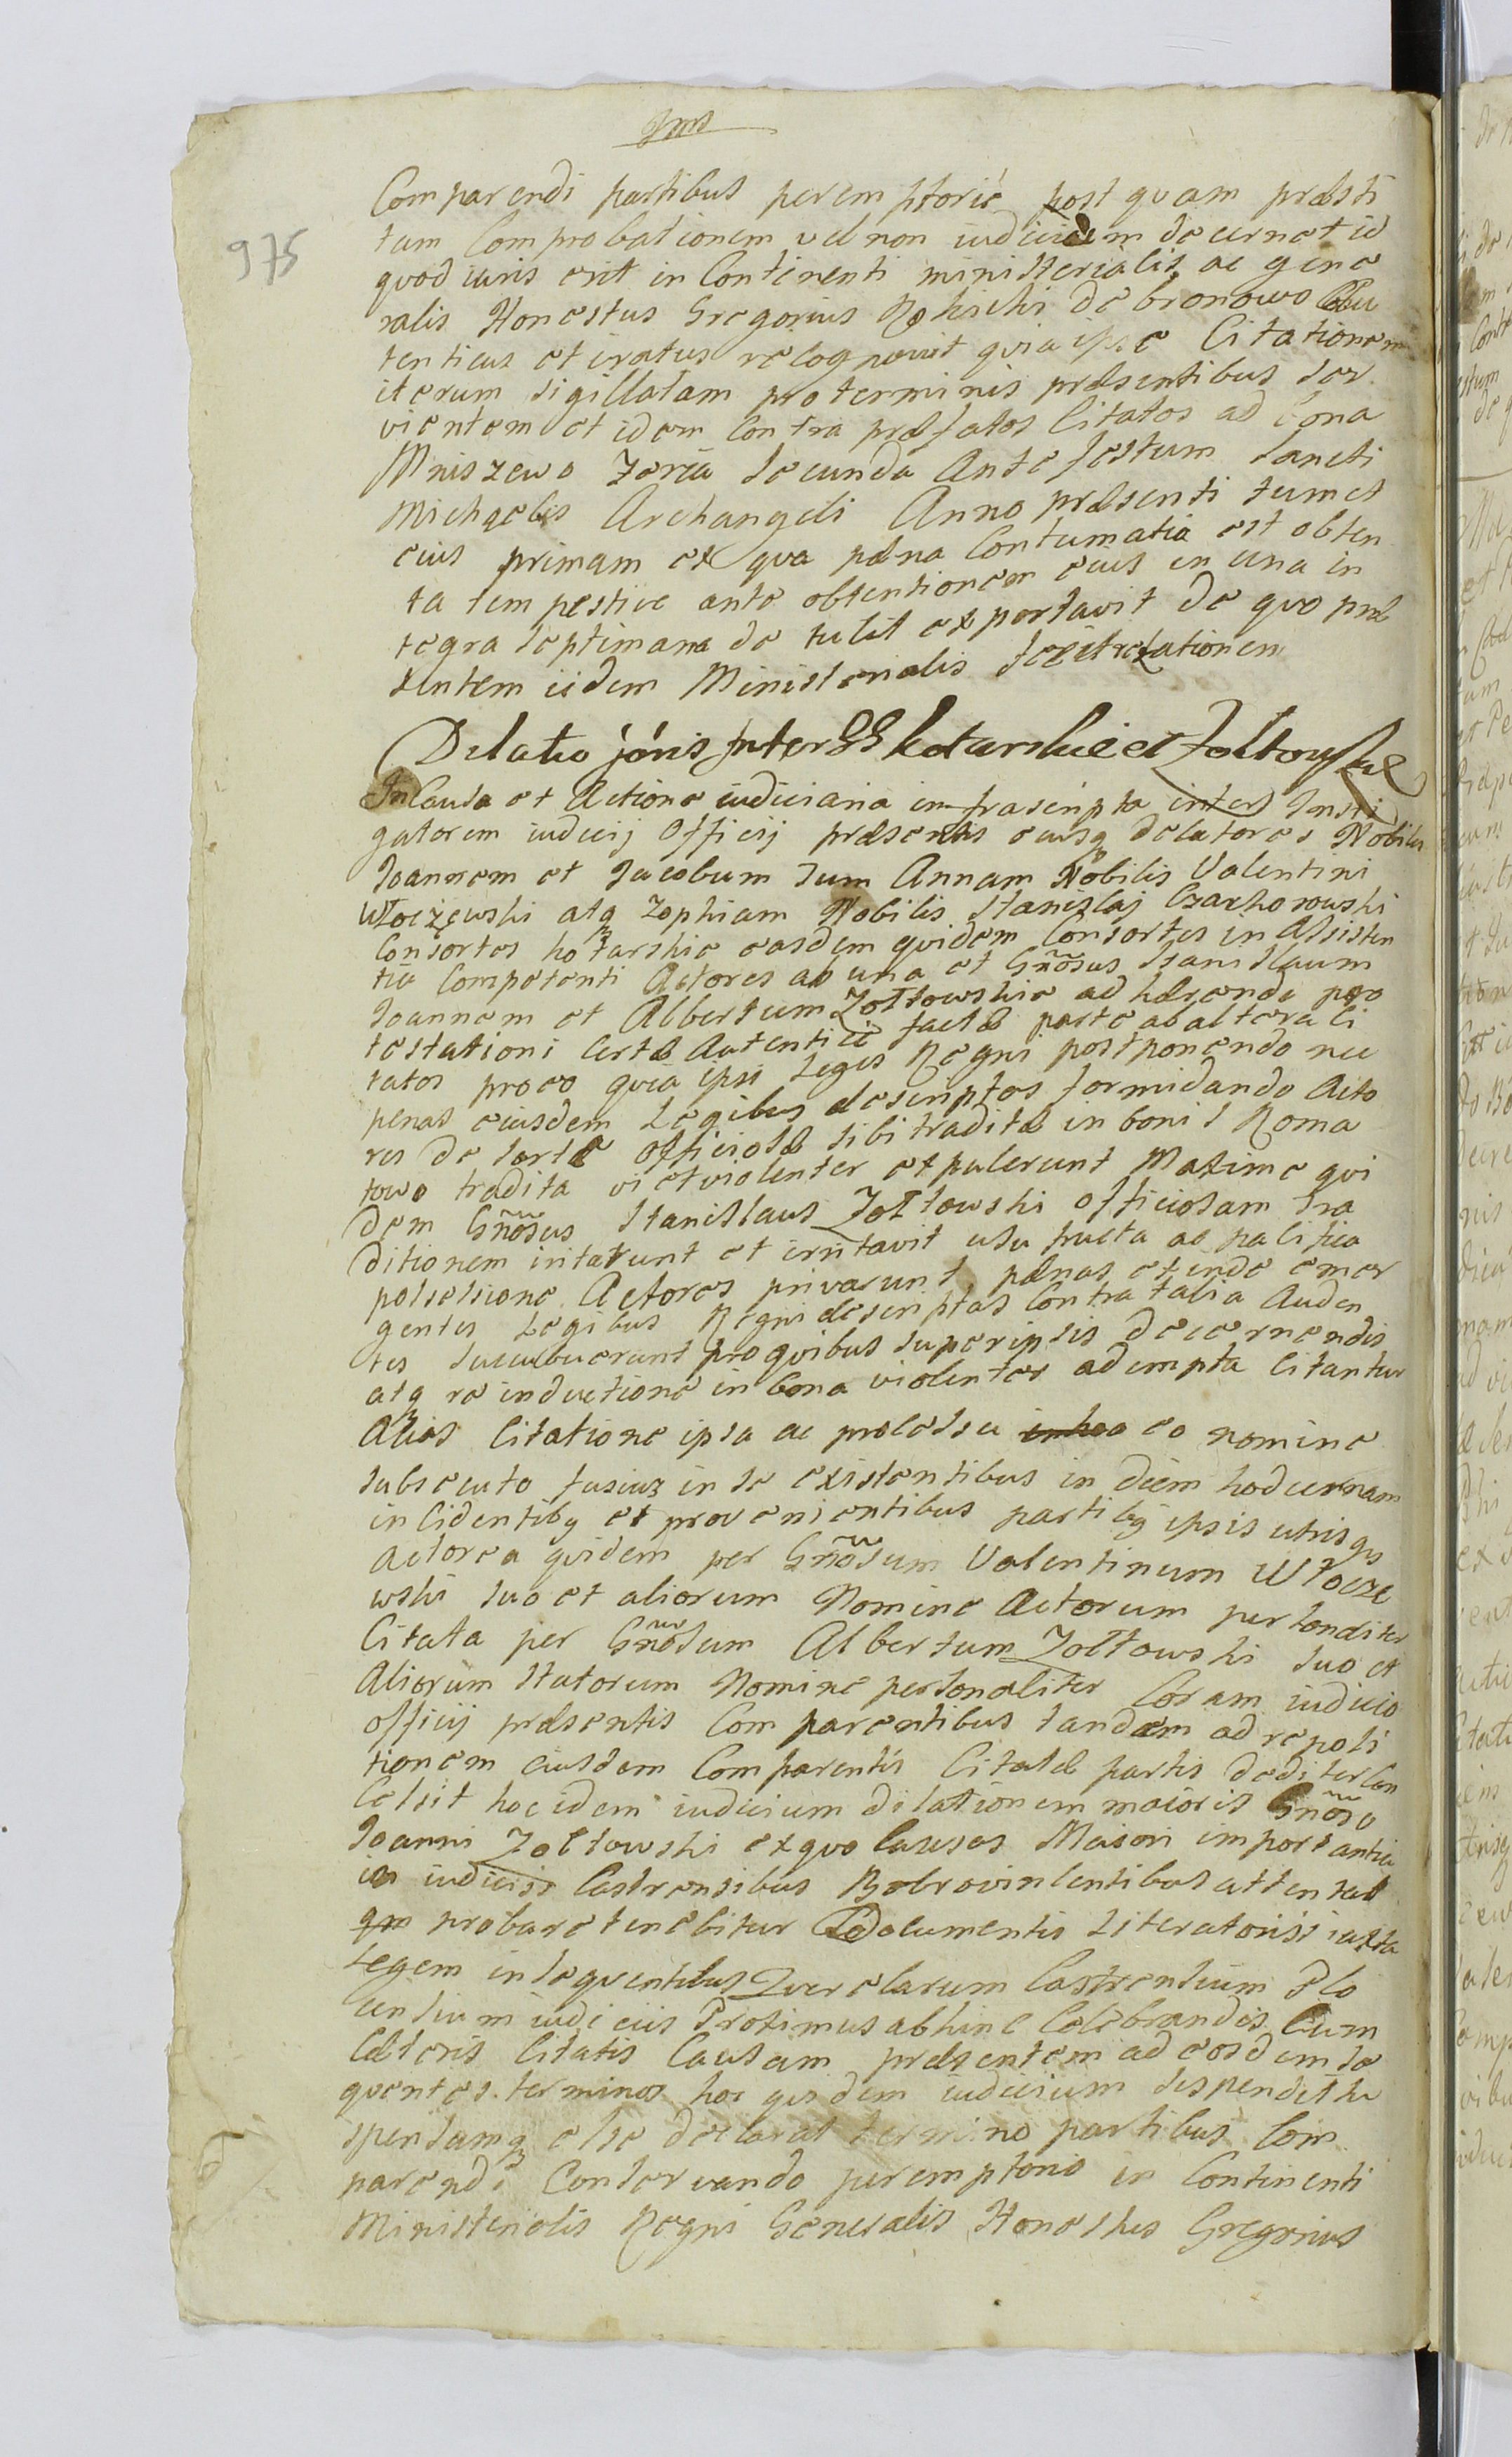 975
Comparendi partibus peremptorie post quam præsti
tam Comprobationem vel non iudicium decernet id
quod iuris erit in Continenti ministerialis ac gene
ralis Honestus Gregorius de bronowo Au
tenticus et iratus recognovit quia ipse Citationem
iterum sigillatam pro terminis præsentibus ser
vientem et idem Contra præfatos Citatos ad bona
Mniszewo Feria secunda Ante festum Sancti
Michaelis Archangeli Anno præsenti tum et
eius primam ex qua pæna Contumatia est obten
ta tempestive ante obtentionem eius in una in
tegra septimana de tulit exportavit de quo præ
sentem iidem Ministerialis fecit relationem
Dilatio júris Inter GG kotarskie et Zołtowskie
In Causa et Actione iudiciaria infrascripta inter Insti
gatorem iudicij Officij præsentis eiusq delatores Nobiles
Joannem et Jacobum tum Annam Nobilis Valentini
Włoczewski atq Zophiam Nobilis Stanislaj Czachorowski
Consortes kotarskie easdem quidem Consortes in Assisten
tia Competenti Actores ab una et Gnosus Stanislaum
Joannem et Albertum Zołtowskie ad hærende pro
testationi Certæ Autentice factæ parte ab altera Ci
tatos pro eo quia ipsi Leges Regni postponendo nec
penas eiusdem Legibus descriptos formidando Acto
res de sorte officiosæ sibi traditæ in bonis Roma
towo tradita vi et violenter expulerunt Maxime qui
dem Gnosus Stanislaus Zołtowski officiosam tra
ditionem iritarunt et irritavit usu fructa ac pacifica
possessione Actores privarunt pænas exinde emer
gentes Legibus Regni descriptas Contra talia Auden
tes succubuerunt pro quibus super ipsis decernendis
atq re inductione in bona violenter adempta Citantur
Alias Citatione ipsa ac processu eo nomine
subsecuto fusius in se existentibus in diem hodiernam
incidentibq et provenientibus partibq ipsis utrisqs
Actorea quidem per Gnosum Valentinum Włocze
wski suo et aliorum Nomine Actorum personaliter
Citata per Gnosum Albertum Zołtowski suo et
Aliorum Statorum Nomine personaliter Coram iudicio
officij præsentis Comparentibus tandem ad repoti
tionem eiusdem Comparentis Citatæ partis Con
cessit hoc idem iudicium dilationem maioris Gnoso
Joanni Zołtowski ex quo Causas Maiori importantia
in iudiciis Castrensibus attentat
qm probare tenebitur Documentis Literatoriis iuxta
legem in sequentibus Querelarum Castrensium Plo
censium iudiciis Proximus abhinc Celebrandis Cum
Cæteris Citatis Causam præsentem ad eosdem se
quentes terminos hoc quidem iudicium suspendit su
spensamq esse declarat termino partibus Com
parendi Conservando peremptorie in Continenti
Ministerialis Regni Generalis Honestus Gregorius